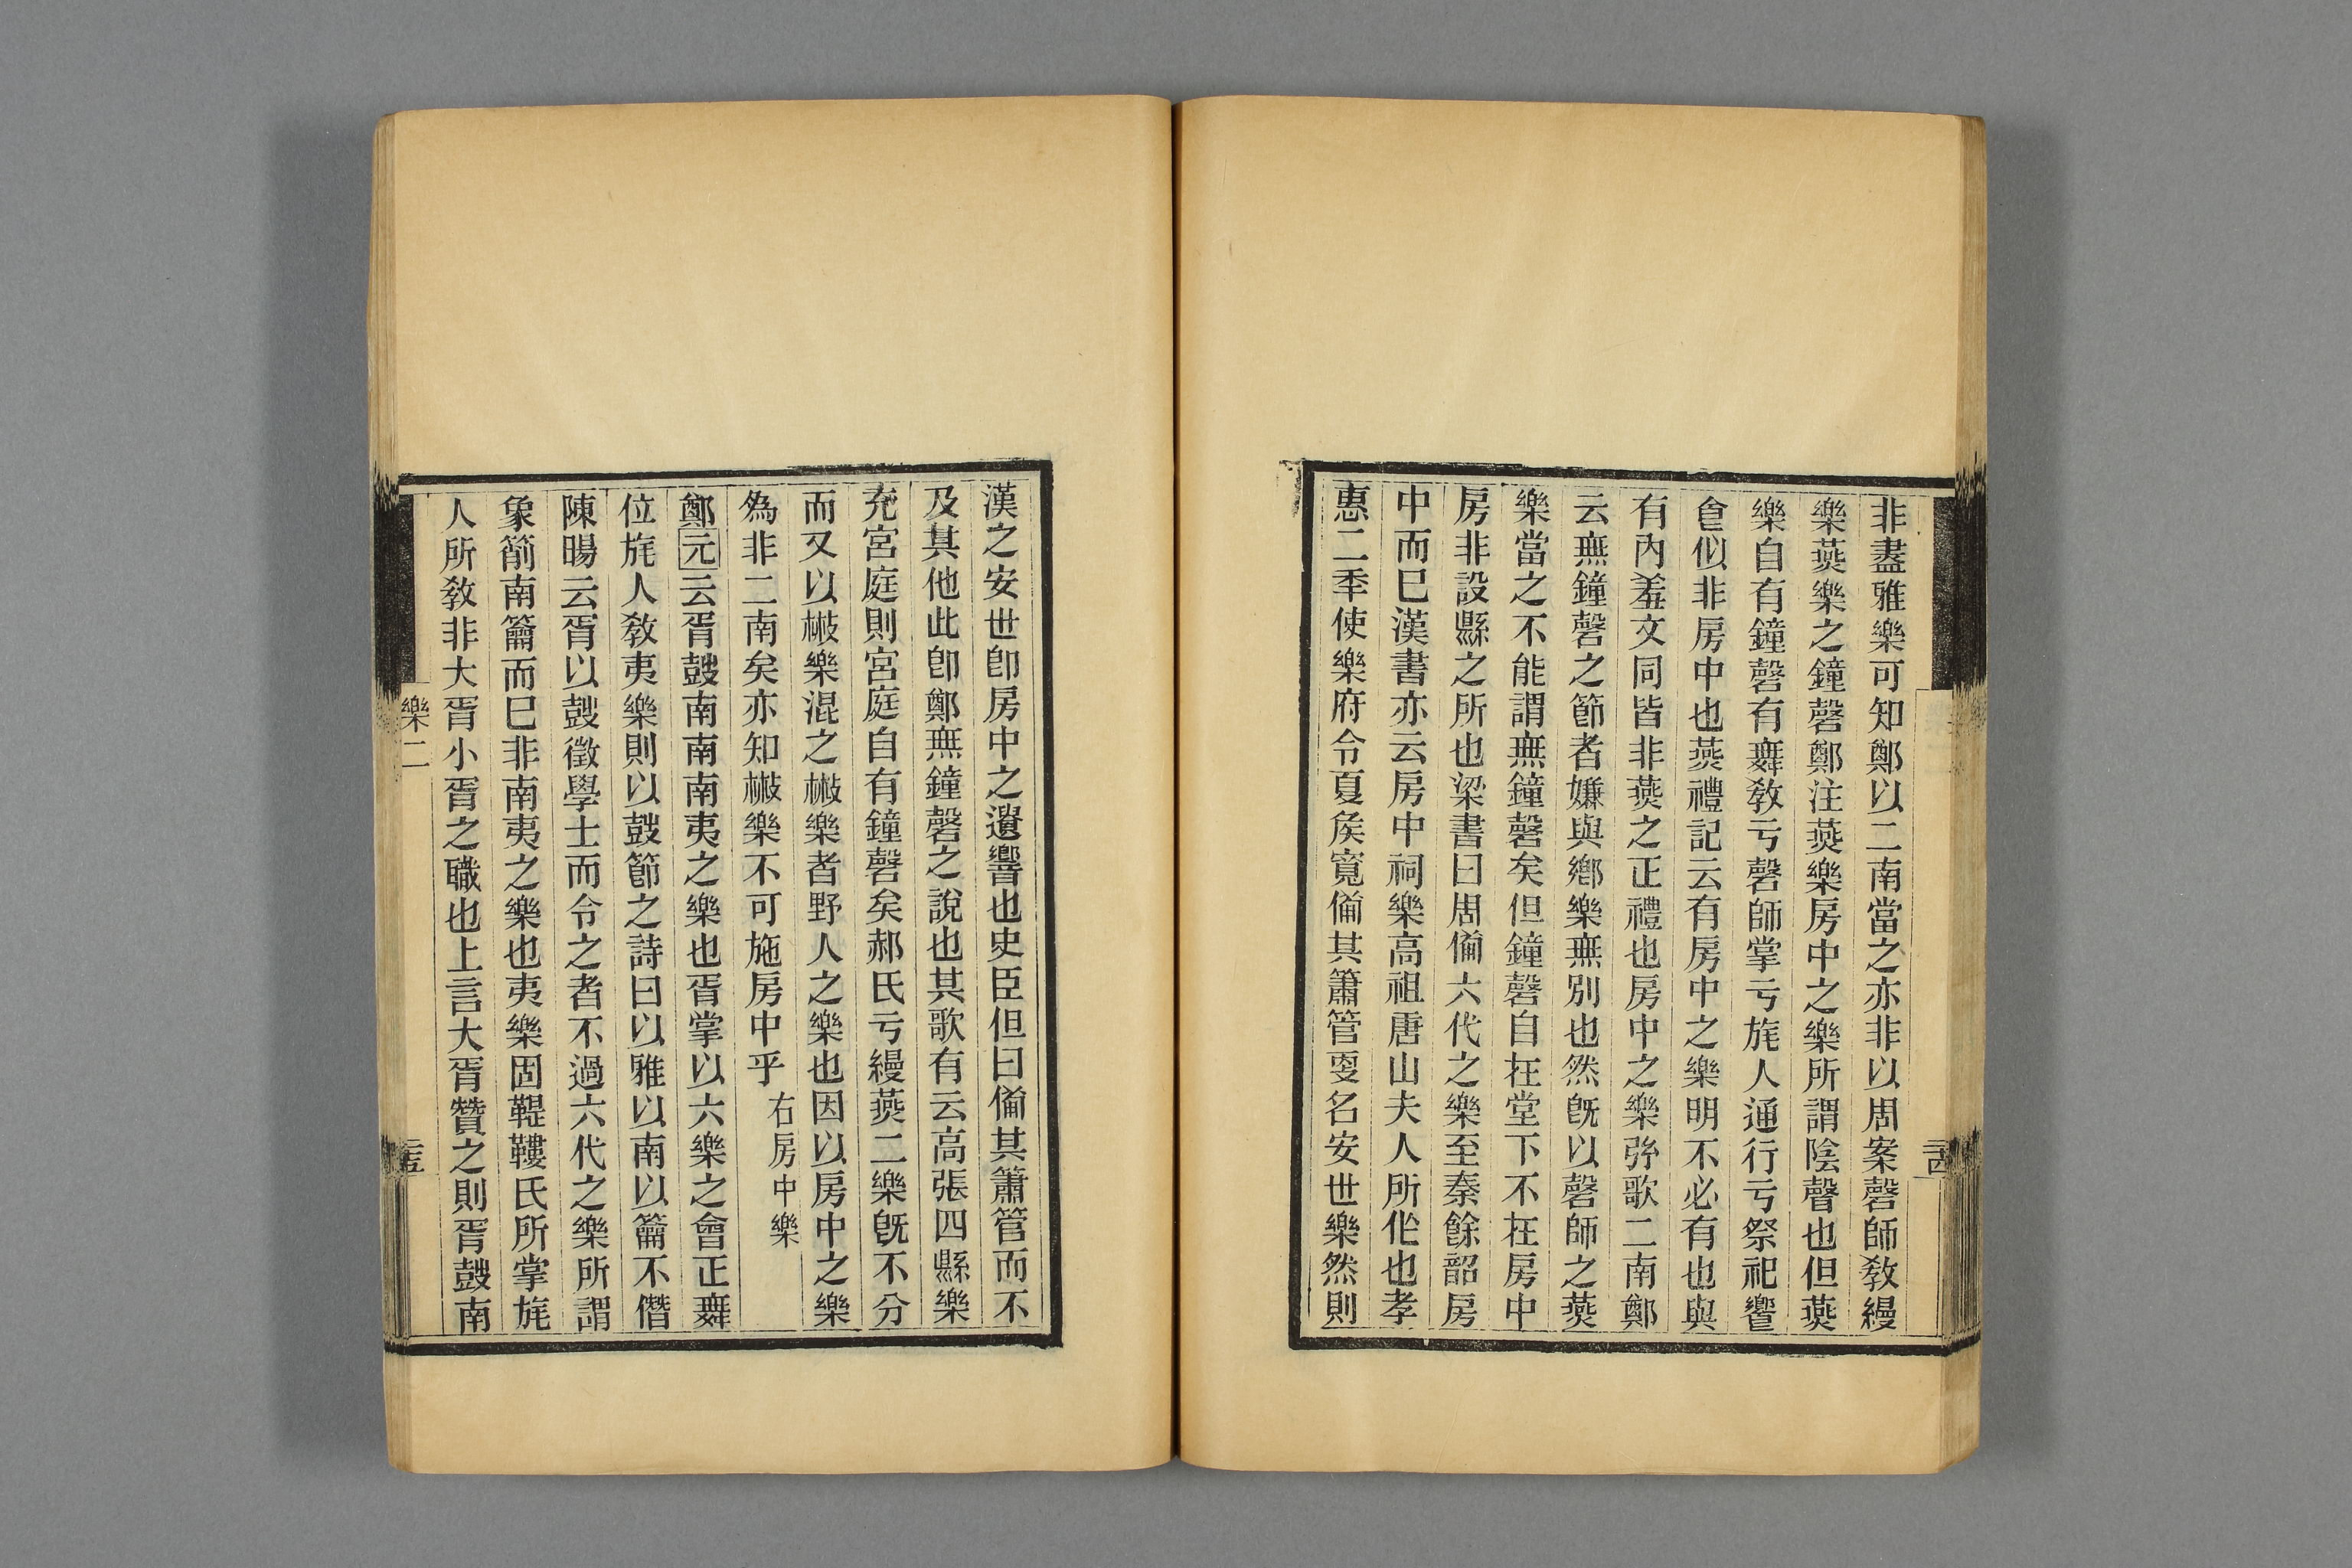 非盡雅樂可知鄭以二南當之亦非以周案磬師敎縵
樂燕樂之鐘磬鄭注燕樂房中之樂所謂陰聲也但燕
樂自有鐘磬有舞敎亏磬師掌亏旄人通行亏祭祀饗
食似非房中也燕禮記云有房中之樂明不必有也與
有內羞文同皆非燕之正禮也房中之樂弦歌二南鄭
云無鐘磬之節者嫌與鄉樂無別也然旣以磬師之燕
樂當之不能謂無鐘磬矣但鐘磬自在堂下不在房中
房非設縣之所也梁書曰周僃六代之樂至秦餘韶房
中而已漢書亦云房中祠樂高祖唐山夫人所作也孝
惠二秊使樂府令夏矦寬僃其簫管更名安世樂然則
三西
漢之安世卽房中之遺響也史臣但曰僃其簫管而不
及其他此卽鄭無鐘磬之說也其歌有云高張四縣樂
充宮庭則宮庭自有鐘磬矣郝氏亏縵燕二樂旣不分
而又以散樂混之散樂者野人之樂也因以房中之樂
爲非二南矣亦知散樂不可施房中乎 右房中樂
鄭元云胥鼓南南南夷之樂也胥掌以六樂之會正舞
位旄人敎夷樂則以鼓節之詩曰以雅以南以籥不僭
陳暘云胥以鼓徵學士而令之者不過六代之樂所謂
象箾南籥而已非南夷之樂也夷樂固鞮鞻氏所掌旄
人所敎非大胥小胥之職也上言大胥贊之則胥鼓南
樂二